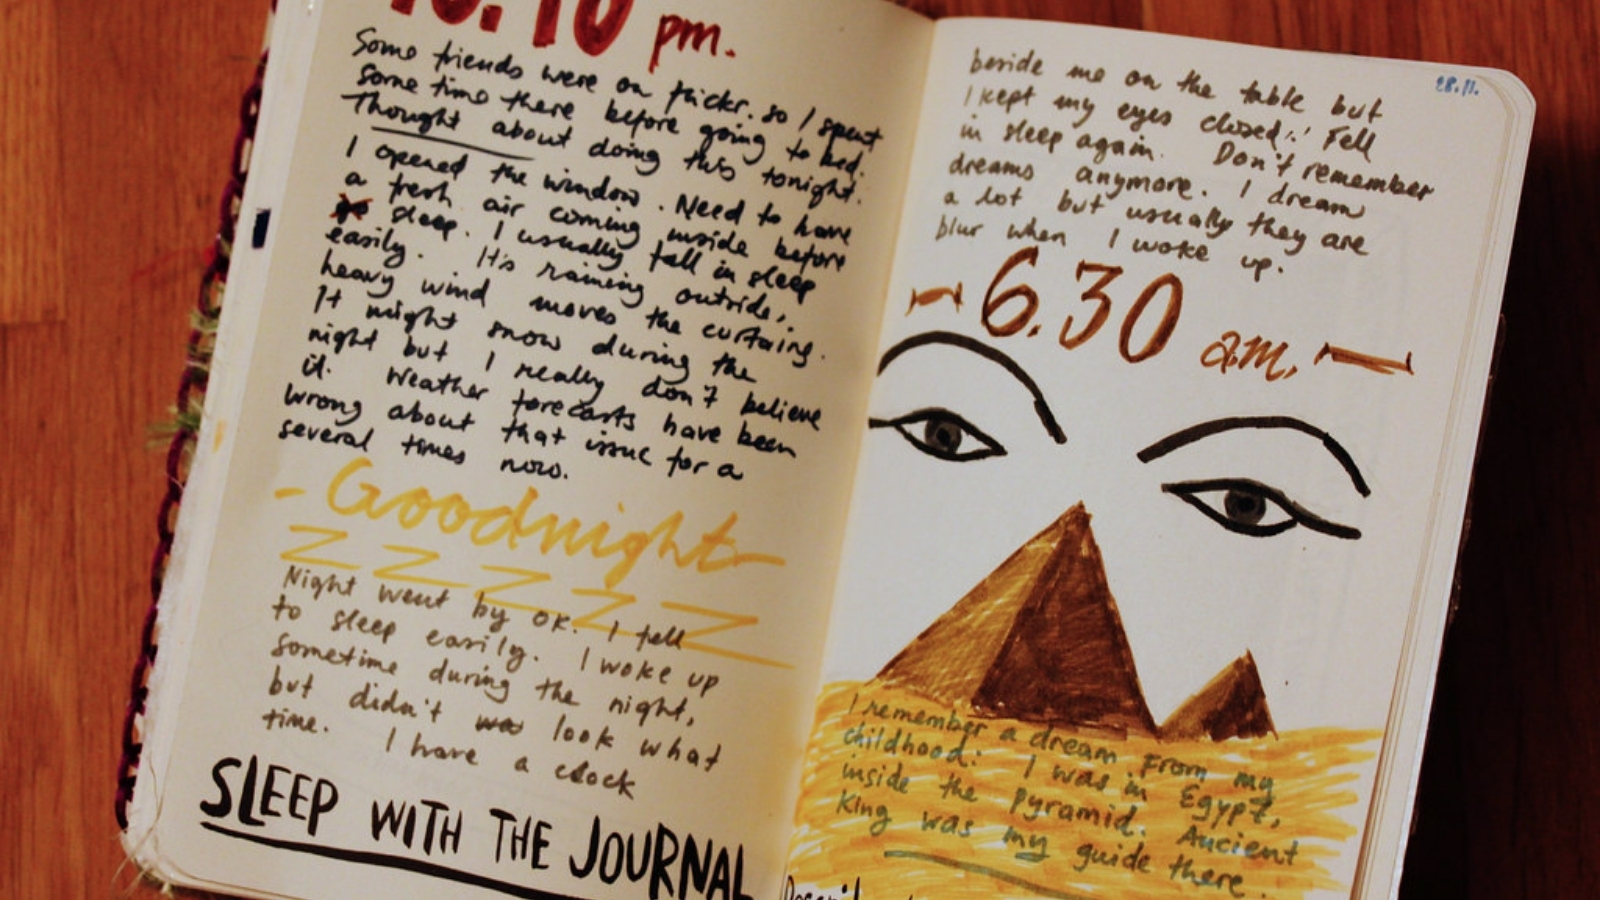 10.10 pm.
Some friends were on flickr. so I spent
some time there before going to bed.
Thought about doing this tonight.
I opened the window. Need to have
a fresh air coming inside before
sleep. I usually fall in sleep
easily. It's raining outside,
heavy wind moves the curtains.
It might snow during the
night but I really don't believe
it. Weather forecasts have been
wrong about that issue for a
several times now.
- Goodnight -
Z Z Z Z Z
Night went by ok. I fell
to sleep easily. I woke up
sometime during the night,
but didn't look what
time. I have a clock
SLEEP WITH THE JOURNAL
28.11.
beside me on the table but
I kept my eyes closed.. Fell
in sleep again. Don't remember
dreams anymore. I dream
a lot but usually they are
blur when I woke up.
6.30 a.m.
I remember a dream from my
childhood: I was in Egypt,
inside the pyramid. Ancient
King was my guide there.